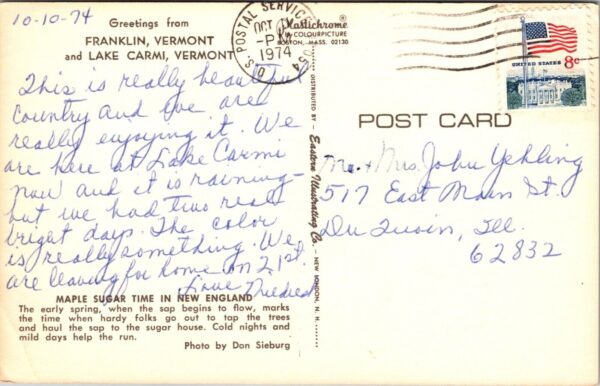 10-10-74
Greetings from
FRANKLIN, VERMONT
and LAKE CARMI, VERMONT
This is really beautiful
country and we are
really enjoying it. We
are here at Lake Carmi
now and it is raining-
but we had two real
bright days. The color
is really something. We
are leaving for home on 21st.
Love
MAPLE SUGAR TIME IN NEW ENGLAND
The early spring, when the sap begins to flow, marks
the time when hardy folks go out to tap the trees
and haul the sap to the sugar house. Cold nights and
mild days help the run.
Photo by Don Sieburg
U.S. POSTAL SERVICE 054
OCT
PM
1974
Plastichrome ®
COLOURPICTURE
BOSTON, MASS. 02130
DISTRIBUTED BY Eastern Illustrating Co. - NEW LONDON, N. H.
UNITED STATES 8c
POST CARD
Mr. + Mrs. John Yehling
517 East Main St.
Du Quoin, Ill.
62832